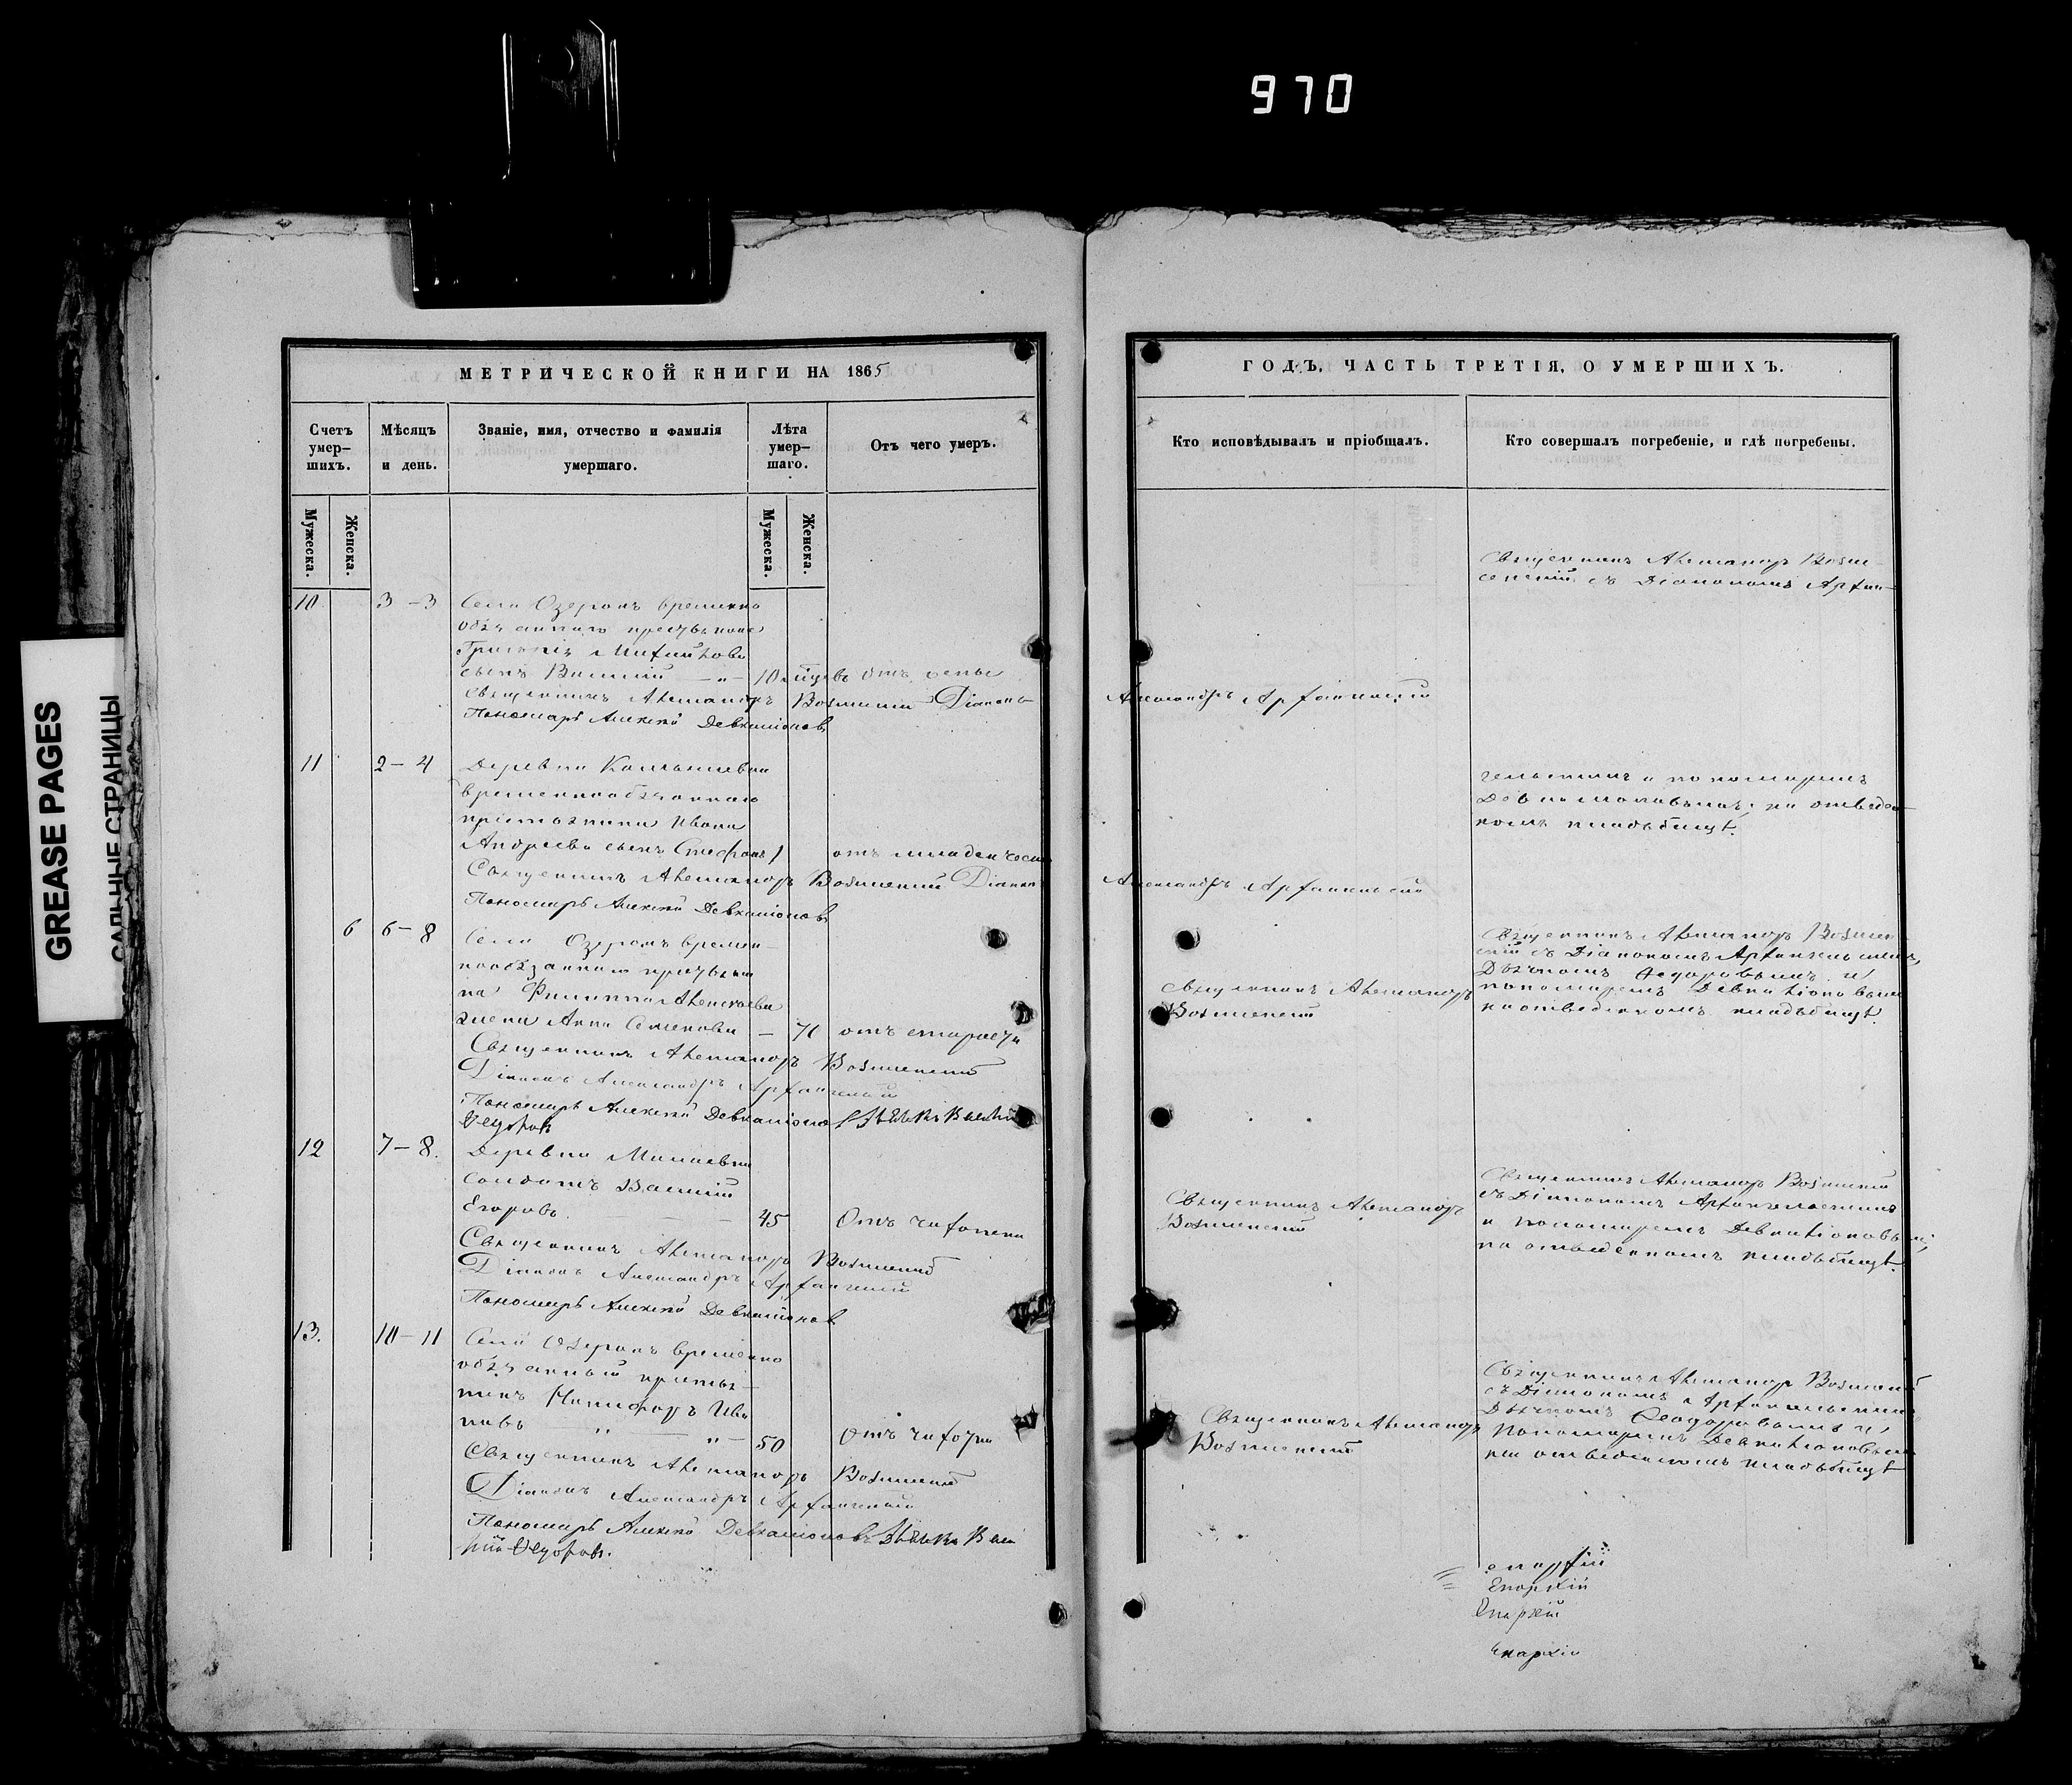 970
GREASE PAGES
САЛЬНЫЕ СТРАНИЦЫ
МЕТРИЧЕСКОЙ КНИГИ НА 1865
Счетъ умер-шихъ.
Мѣсяцъ и день.
Званіе, имя, отчество и фамилія умершаго.
Лѣта умер-шаго.
Отъ чего умеръ.
Мужеска.
Женска.
Мужеска.
Женска.
10 3-3 Села Озерокъ временно
сынъ
10 отъ оспы
Священникъ Александръ Вознесенскій Діаконъ
Пономарь Алексѣй Девкаліоновъ
11 2-4 Деревни
временнообязаннаго
Ивана
Андреева сынъ Стефанъ 1 отъ младенческ
Священникъ Александръ Вознесенскій Діаконъ
Пономарь Алексѣй Девкаліоновъ
6 6-8 Села Озерокъ времен-
нообязаннаго крестьяни
на Филиппа Алексѣева
жена Анна Семенова — 71 отъ старости
Священникъ Александръ Вознесенскій
Діаконъ Александръ Архангельскій
Пономарь Алексѣй Девкаліоновъ Дьячекъ Василій
Ѳедоровъ
12 7-8. Деревни
солдатъ Василій
Егоровъ 45 Отъ чахотки
Священникъ Александръ Вознесенскій
Діаконъ Александръ Архангельскій
Пономарь Алексѣй Девкаліоновъ
13. 10-11 Села Озерокъ временно
обязанный крестья-
нинъ Никифоръ Ива
новъ „ „ 50 Отъ чахотки
Священникъ Александръ Вознесенскій
Діаконъ Александръ Архангельскій
Пономарь Алексѣй Девкаліоновъ Дьячекъ Васи
лій Ѳедоровъ.
ГОДЪ, ЧАСТЬ ТРЕТІЯ, О УМЕРШИХЪ.
Кто исповѣдывалъ и пріобщалъ.
Кто совершалъ погребеніе, и гдѣ погребены.
Священникъ Александръ Возне
сенскій съ Діакономъ Архан-
Александръ Архангельскій
гельскимъ и пономаремъ
Девкаліоновымъ, на отведен-
номъ кладбищѣ.
Александръ Архангельскій
Священникъ Александръ
Вознесенскій
Священникъ Александръ Вознесен
скій съ Діакономъ Архангельскимъ,
Дьячкомъ Ѳедоровымъ и
пономаремъ Девкаліоновымъ
на отведенномъ кладбищѣ.
Священникъ Александръ
Вознесенскій
Священникъ Александръ Вознесенскій
съ Діакономъ Архангельскимъ
и пономаремъ Девкаліоновымъ,
на отведенномъ кладбищѣ.
Священникъ Александръ
Вознесенскій
Священникъ Александръ Вознесенскій
съ Діакономъ Архангельскимъ
Дьячкомъ Ѳеодоровымъ и
пономаремъ Девкаліоновымъ
на отведенномъ кладбищѣ
епархіи
Епархіи
Епархіи
Епархіи